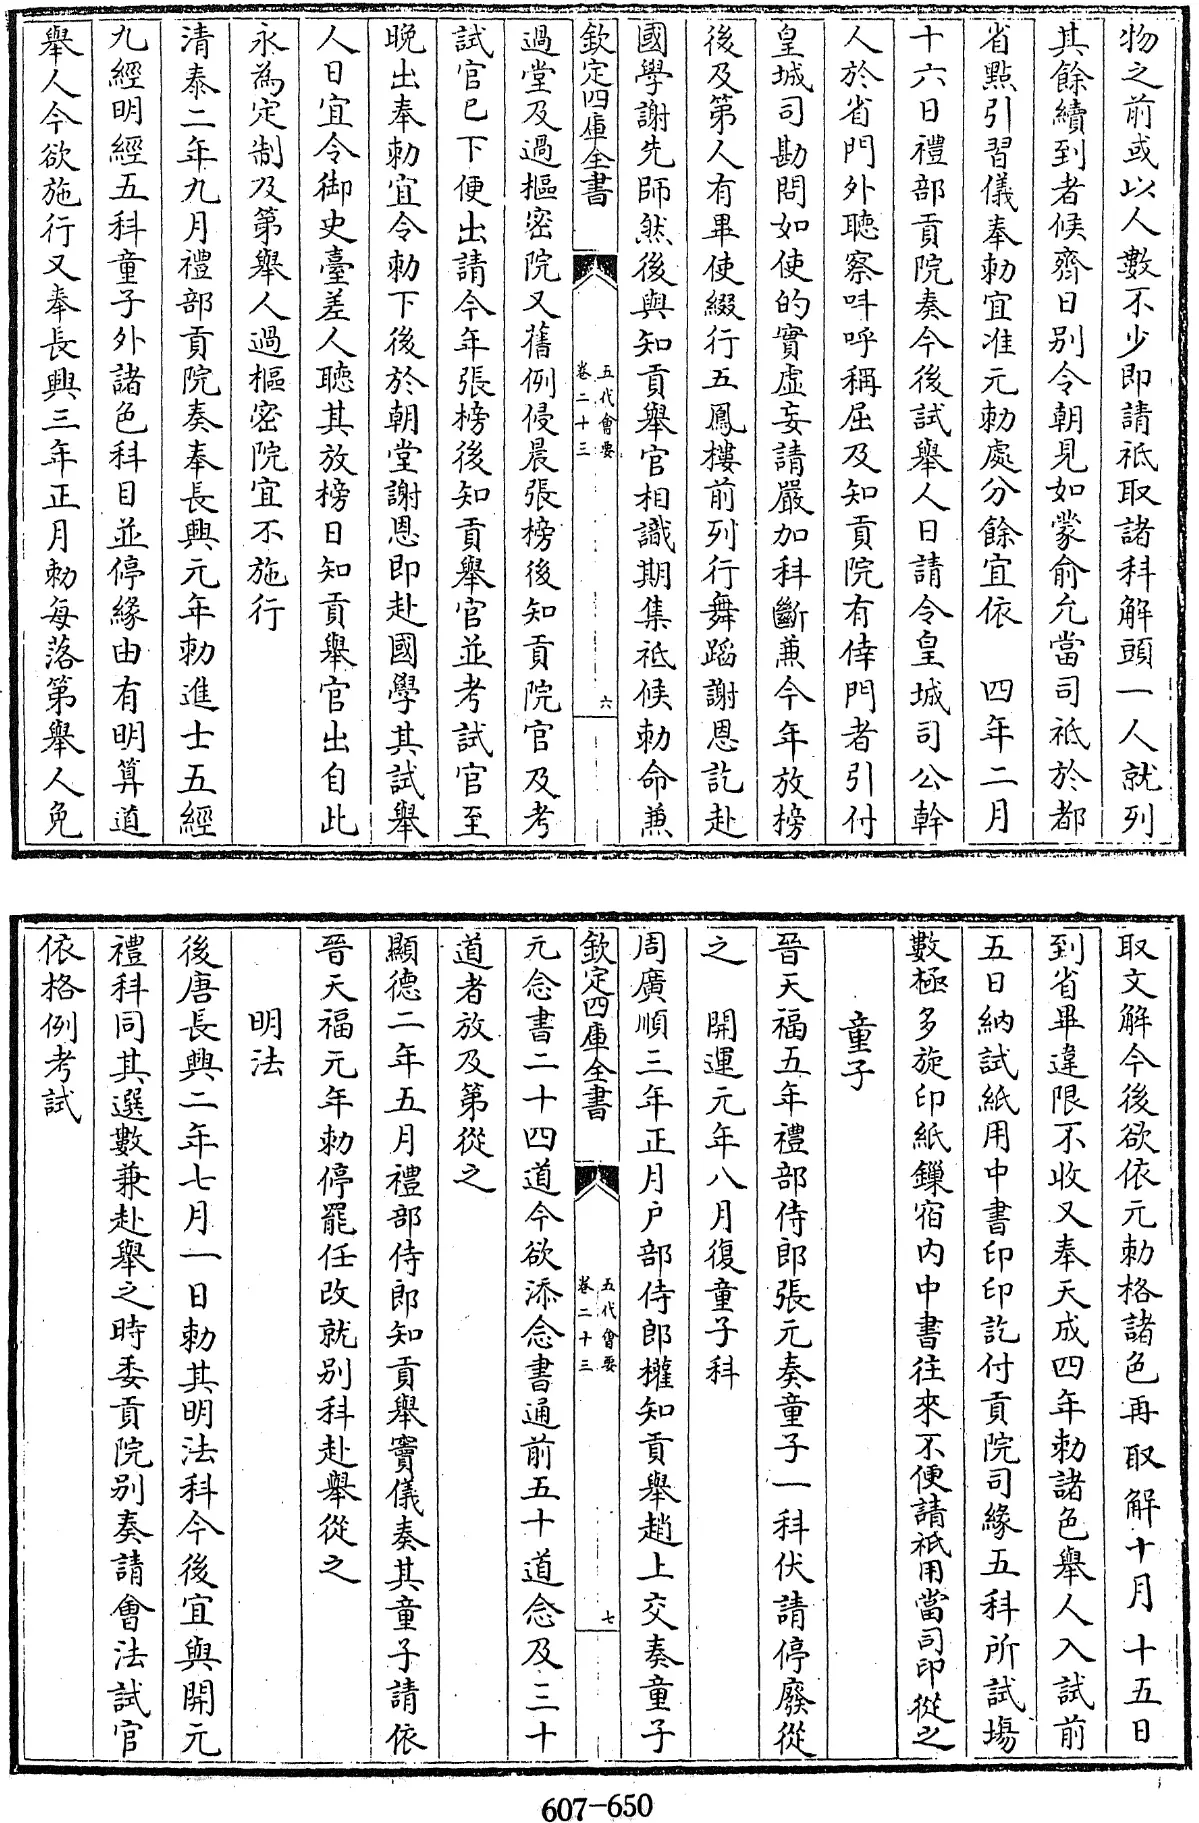 物之前或以人數不少即請祗取諸科解頭一人就列
其餘續到者候齊日别令朝見如蒙俞允當司祗於都
省點引習儀奉勅宜准元勅處分餘宜依　四年二月
十六日禮部貢院奏今後試舉人日請令皇城司公幹
人於省門外聽察呌呼稱屈及知貢院有倖門者引付
皇城司勘問如使的實虛妄請嚴加科斷兼今年放榜
後及第人有畢使綴行五鳳樓前列行舞蹈謝恩訖赴
國學謝先師然後與知貢舉官相識期集祗候勅命兼
欽定四庫全書
五代會要
卷二十三
六
過堂及過樞密院又舊例侵晨張榜後知貢院官及考
試官已下便出請今年張榜後知貢舉官並考試官至
晚出奉勅宜令勅下後於朝堂謝恩即赴國學其試舉
人日宜令御史臺差人聽其放榜日知貢舉官出自此
永為定制及第舉人過樞密院宜不施行
清泰二年九月禮部貢院奏奉長興元年勅進士五經
九經明經五科童子外諸色科目並停緣由有明算道
舉人今欲施行又奉長興三年正月勅每落第舉人免
取文解今後欲依元勅格諸色再取解十月十五日
到省畢違限不收又奉天成四年勅諸色舉人入試前
五日納試紙用中書印印訖付貢院司緣五科所試場
數極多旋印紙鏁宿内中書往來不便請祗用當司印從之
童子
晉天福五年禮部侍郎張元奏童子一科伏請停廢從
之　開運元年八月復童子科
周廣順三年正月户部侍郎權知貢舉趙上交奏童子
欽定四庫全書
五代會要
卷二十三
七
元念書二十四道今欲添念書通前五十道念及三十
道者放及第從之
顯德二年五月禮部侍郎知貢舉竇儀奏其童子請依
晉天福元年勅停罷任改就别科赴舉從之
明法
後唐長興二年七月一日勅其明法科今後宜與開元
禮科同其選數兼赴舉之時委貢院别奏請會法試官
依格例考試
607-650